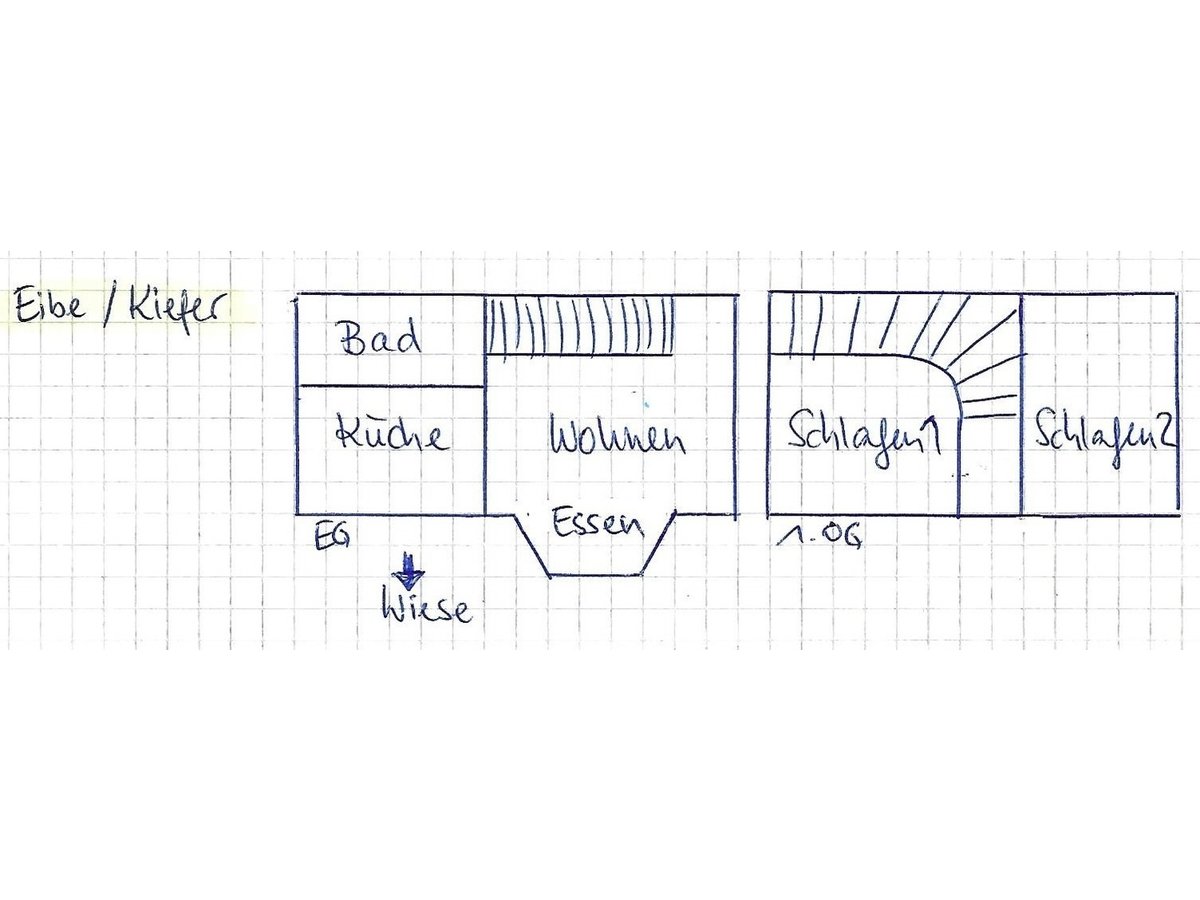 Eibe / Kiefer
Bad
Küche
Wohnen
Essen
EG
Wiese
Schlafen 1
Schlafen 2
1. OG